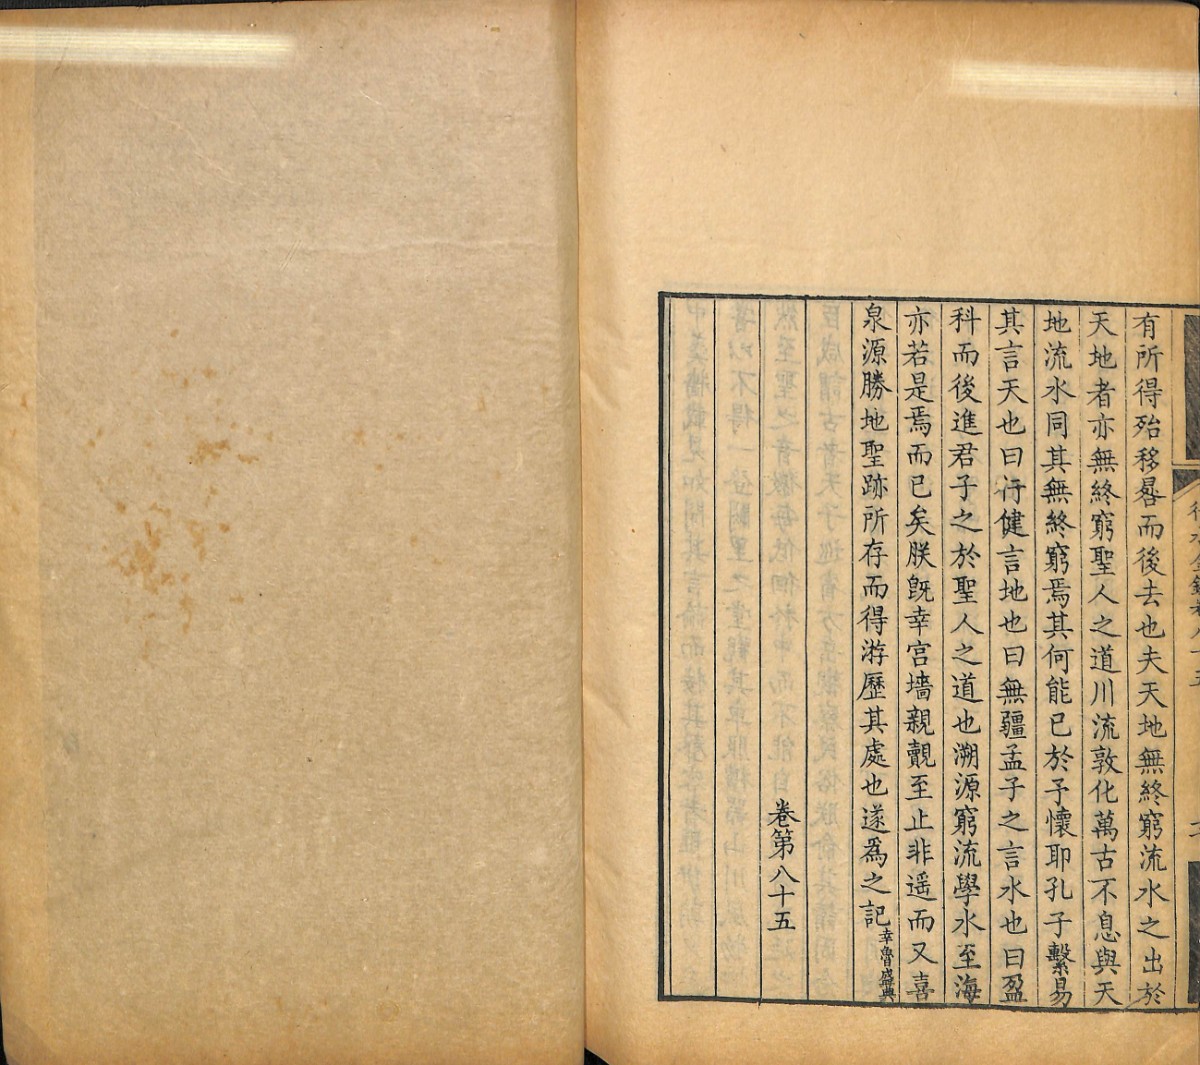 有所得殆移晷而後去也夫天地無終窮流水之出於
天地者亦無終窮聖人之道川流敦化萬古不息與天
地流水同其無終窮焉其何能已於予懷耶孔子繫易
其言天也曰行健言地也曰無疆孟子之言水也曰盈
科而後進君子之於聖人之道也溯源窮流學水至海
亦若是焉而已矣朕旣幸宫墻親覿至止非遥而又喜
泉源勝地聖跡所存而得游歷其處也遂爲之記幸魯盛典
卷第八十五